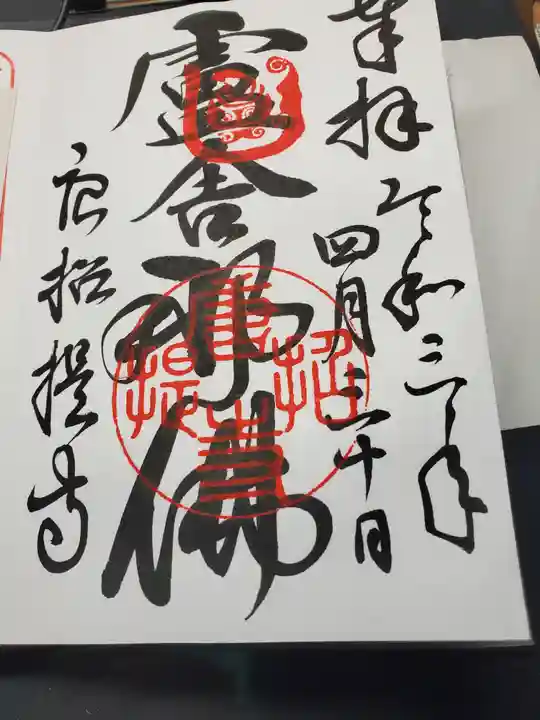 奉拝
令和三年
四月三十日
盧舎那佛
唐招提寺
唐招提寺